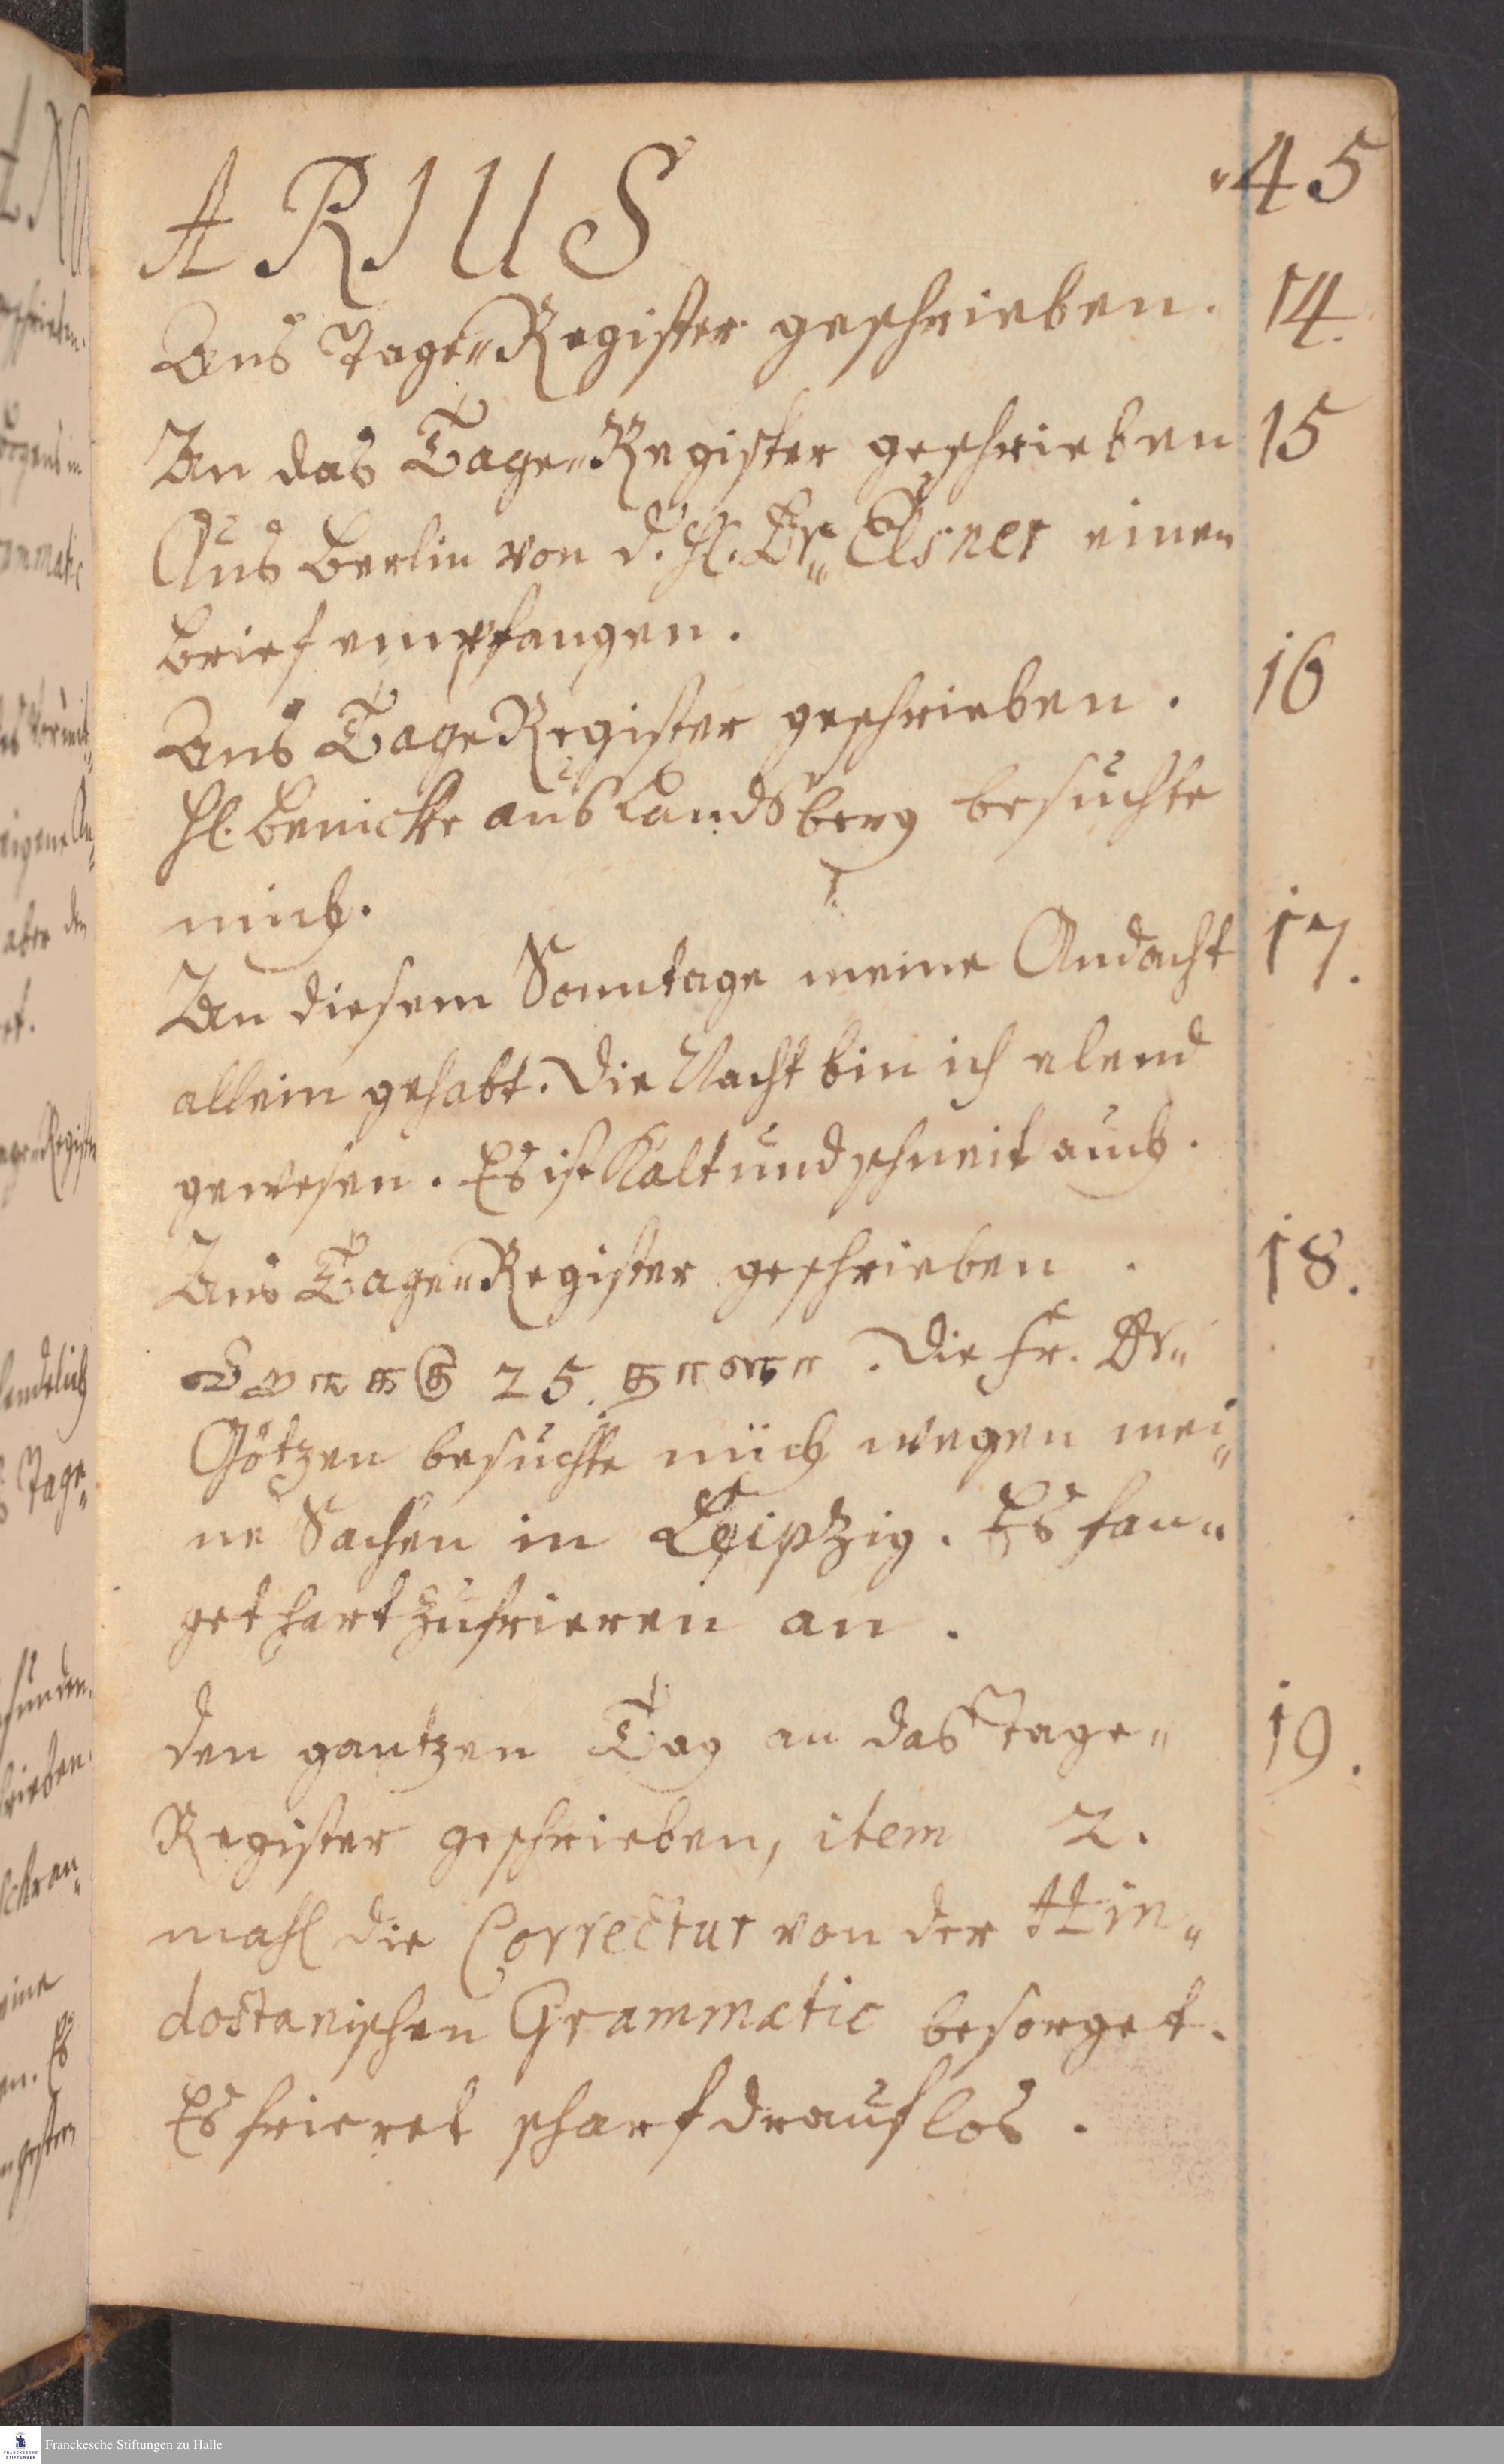 45
ARIUS
Ans Tage-Register geschrieben. 14.
An das Tage-Register geschrieben 15
Aus Berlin von d. H. Dr. Elsner einen
Brief empfangen.
Ans Tage Register geschrieben. 16
H. Benicke aus Landsberg besuchte
mich.
An diesem Sonntage meine Andacht 17.
allein gehabt. Die Nacht bin ich elend
gewesen. Es ist kalt und schneit auch.
Ans Tage-Register geschrieben. 18.
25. Die Fr. Dr.
Götzen besuchte mich wegen mei-
ne Sachen in Leipzig. Es fan-
get hart zu frieren an.
Den gantzen Tag an das Tage- 19.
Register geschrieben, item 2.
mahl die Correctur von der Hin-
dostanischen Grammatic besorget.
Es frieret scharf drauf los.
Franckesche Stiftungen zu Halle